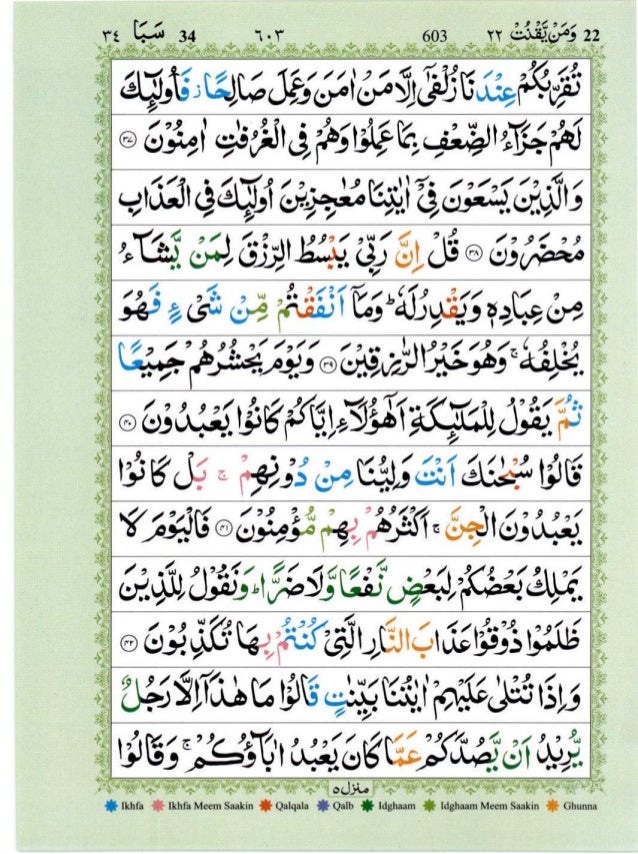 ٣٤ سَبَا 34 ٦٠٣ 603 وَمَنْ يَّقْنُتْ ٢٢ 22
تُقَرِّبُكُمْ عِنْدَنَا زُلْفٰۤى اِلَّا مَنْ اٰمَنَ وَعَمِلَ صَالِحًا ز فَاُولٰٓئِكَ
لَهُمْ جَزَآءُ الضِّعْفِ بِمَا عَمِلُوْا وَهُمْ فِى الْغُرُفٰتِ اٰمِنُوْنَ ﴿٣٧﴾
وَالَّذِيْنَ يَسْعَوْنَ فِىْۤ اٰيٰتِنَا مُعٰجِزِيْنَ اُولٰٓئِكَ فِى الْعَذَابِ
مُحْضَرُوْنَ ﴿٣٨﴾ قُلْ اِنَّ رَبِّىْ يَبْسُطُ الرِّزْقَ لِمَنْ يَّشَآءُ
مِنْ عِبَادِهٖ وَيَقْدِرُ لَهٗ ؕ وَمَاۤ اَنْفَقْتُمْ مِّنْ شَىْءٍ فَهُوَ
يُخْلِفُهٗ ۚ وَهُوَ خَيْرُ الرّٰزِقِيْنَ ﴿٣٩﴾ وَيَوْمَ يَحْشُرُهُمْ جَمِيْعًا
ثُمَّ يَقُوْلُ لِلْمَلٰٓئِكَةِ اَهٰٓؤُلَآءِ اِيَّاكُمْ كَانُوْا يَعْبُدُوْنَ ﴿٤٠﴾
قَالُوْا سُبْحٰنَكَ اَنْتَ وَلِيُّنَا مِنْ دُوْنِهِمْ ۚ بَلْ كَانُوْا
يَعْبُدُوْنَ الْجِنَّ ۚ اَكْثَرُهُمْ بِهِمْ مُّؤْمِنُوْنَ ﴿٤١﴾ فَالْيَوْمَ لَا
يَمْلِكُ بَعْضُكُمْ لِبَعْضٍ نَّفْعًا وَّلَا ضَرًّا ؕ وَنَقُوْلُ لِلَّذِيْنَ
ظَلَمُوْا ذُوْقُوْا عَذَابَ النَّارِ الَّتِىْ كُنْتُمْ بِهَا تُكَذِّبُوْنَ ﴿٤٢﴾
وَاِذَا تُتْلٰى عَلَيْهِمْ اٰيٰتُنَا بَيِّنٰتٍ قَالُوْا مَا هٰذَاۤ اِلَّا رَجُلٌ
يُّرِيْدُ اَنْ يَّصُدَّكُمْ عَمَّا كَانَ يَعْبُدُ اٰبَآؤُكُمْ ۚ وَقَالُوْا
منزل ٥
Ikhfa Ikhfa Meem Saakin Qalqala Qalb Idghaam Idghaam Meem Saakin Ghunna